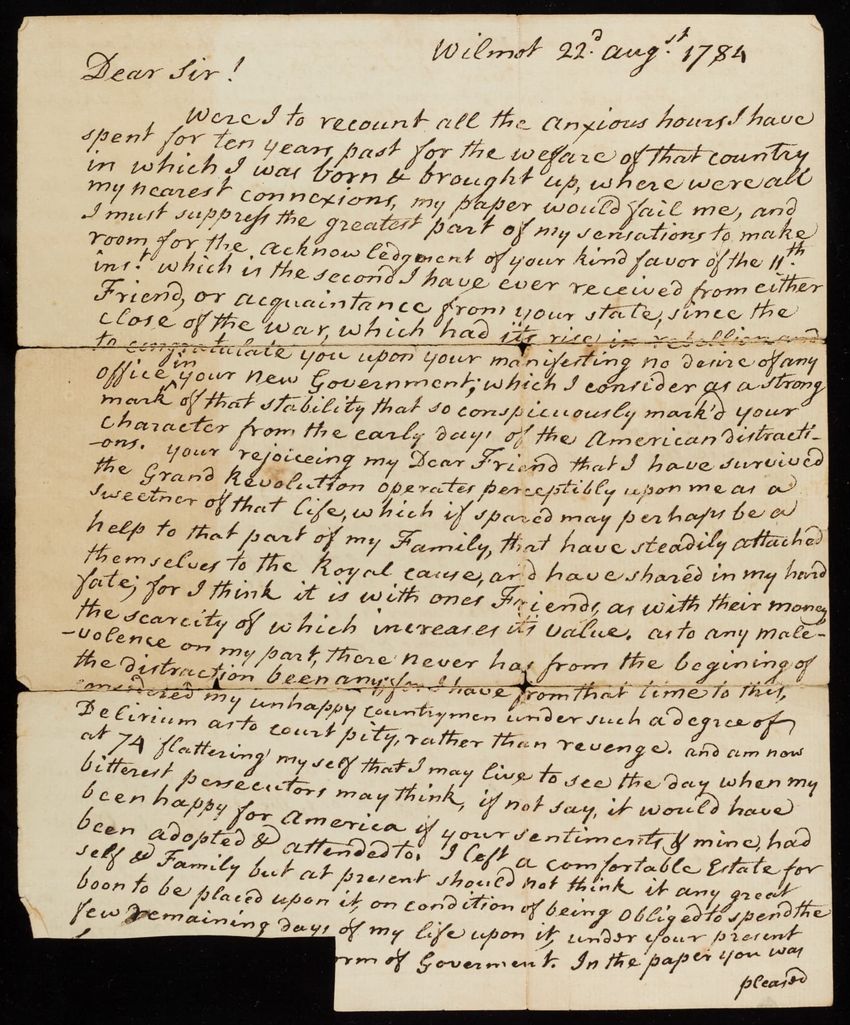 Wilmot 22.d Aug.st 1784
Dear Sir!
Were I to recount all the anxious hours I have
spent for ten years past for the welfare of that country
in which I was born & brought up, where were all
my nearest connexions, my paper would fail me, and
I must suppress the greatest part of my sensations to make
room for the acknowledgment of your kind favor of the 11.th
ins.t which is the second I have ever received from either
Friend, or acquaintance from your state, since the
close of the war, which had its rise in rebellion and
to congratulate you upon your manifesting no desire of any
office in your new Government, which I consider as a strong
mark of that stability that so conspicuously mark'd your
character from the early days of the American distracti-
-ons. your rejoiceing my Dear Friend that I have survived
the Grand Revolution operates perceptibly upon me as a
sweetner of that life, which if spared may perhaps be a
help to that part of my Family, that have steadily attached
themselves to the Royal cause, and have shared in my hard
fate; for I think it is with ones Friends, as with their money
the scarcity of which increases its value. as to any male-
-volence on my part, there never has from the begining of
the distraction been any; for I have from that time to this,
considered my unhappy countrymen under such a degree of
Delirium as to court pity, rather than revenge. and am now
at 74 flattering myself that I may live to see the day when my
bitterest persecutors may think, if not say, it would have
been happy for America if your sentiments & mine, had
been adopted & attended to. I left a comfortable Estate for
self & Family but at present should not think it any great
boon to be placed upon it, on condition of being obliged to spend the
few remaining days of my life upon it, under your present
of Goverment. In the paper you was
pleased